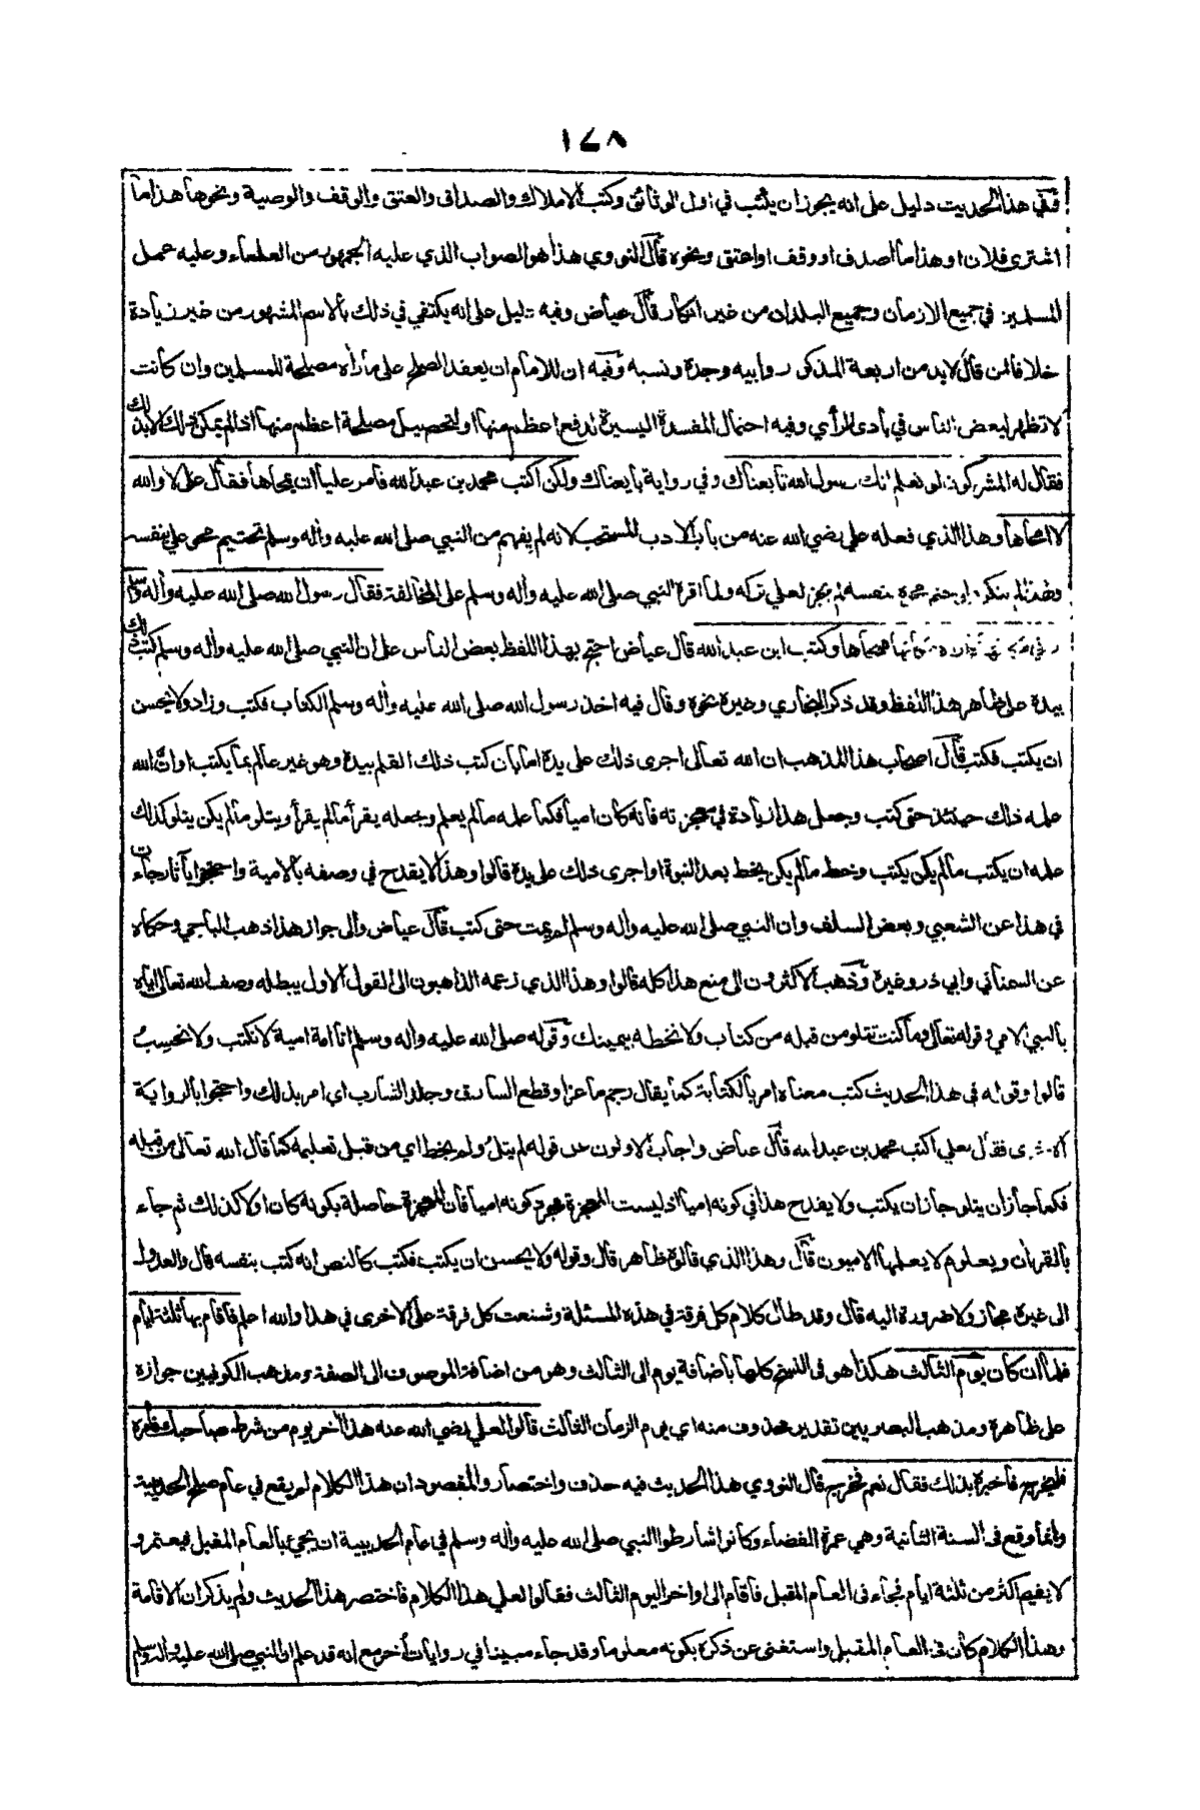 ١٤٨
ففي هذا الحديث دليل على انه يجوز ان يكتب في اول الوثائق وكتب الاملاك والصداق والعتق والوقف والوصية ونحوها هذا ما
اشترى فلان او هذا ما اصدق او وقف او اعتق ونحوه قال النووي هذا هو الصواب الذي عليه الجمهور من العلماء وعليه عمل
المسلمين في جميع الازمان وجميع البلدان من غير انكار قال عياض وفيه دليل على انه يكتفي في ذلك بالاسم المشهور من غير زيادة
خلافا لمن قال لابد من اربعة المذكور وابيه وجده ونسبه وفيه ان للامام ان يعقد الصلح على ما رأه مصلحة للمسلمين وان كانت
لا تظهر لبعض الناس في بادى الرأي وفيه احتمال المفسدة اليسيرة لدفع اعظم منها او لتحصيل مصلحة اعظم منها اذا لم يمكن ذلك الا بذلك
فقال له المشركون لو نعلم انك رسول الله تابعناك وفي رواية بايعناك ولكن اكتب محمد بن عبد الله فأمر عليا ان يمحاها فقال علي لا والله
لا امحاها وهذا الذي فعله علي رضي الله عنه من باب الادب المستحب لانه لم يفهم من النبي صلى الله عليه واله وسلم تحتيم محو علي بنفسه
ولهذا لم ينكر ولو حتم محوه بنفسه لم يجز لعلي تركه ولما اقره النبي صلى الله عليه واله وسلم على المخالفة فقال رسول الله صلى الله عليه واله وسلم
فمحاها وكتب ابن عبد الله قال عياض احتج بهذا اللفظ بعض الناس على ان النبي صلى الله عليه واله وسلم كتب ذلك
بيده على ظاهر هذا اللفظ وقد ذكر البخاري وغيره نحوه وقال فيه اخذ رسول الله صلى الله عليه واله وسلم الكتاب فكتب وزاد ولا يحسن
ان يكتب فكتب قال اصحاب هذا المذهب ان الله تعالى اجرى ذلك على يده اما بان كتب ذلك القلم بيده وهو غير عالم بما يكتب او ان الله
علمه ذلك حينئذ حتى كتب وجعل هذا زيادة في معجزته فانه كان اميا فكما علمه ما لم يعلم وجعله يقرأ ما لم يقرأ ويتلو ما لم يكن يتلو كذلك
علمه ان يكتب ما لم يكن يكتب وخط ما لم يكن يخط بعد النبوة او اجرى ذلك على يده قالوا وهذا لا يقدح في وصفه بالامية واحتجوا بآثار جاءت
في هذا عن الشعبي وبعض السلف وان النبي صلى الله عليه واله وسلم لم يمت حتى كتب قال عياض والى جواز هذا ذهب الباجي وحكاه
عن السمناني وابي ذر وغيره وذهب الاكثرون الى منع هذا كله قالوا وهذا الذي زعمه الذاهبون الى القول الاول يبطله وصف الله تعالى اياه
بالنبي الامي وقوله تعالى وما كنت تتلو من قبله من كتاب ولا تخطه بيمينك وقوله صلى الله عليه واله وسلم انا امة امية لا نكتب ولا نحسب
قالوا وقوله في هذا الحديث كتب معناه امر بالكتابة كما يقال رجم ماعزا وقطع السارق وجلد الشارب اي امر بذلك واحتجوا بالرواية
الاخرى فقال لعلي اكتب محمد بن عبد الله قال عياض واجاب الاولون عن قوله لم يتل ولم يخط اي من قبل تعليمه كما قال الله تعالى من قبله
فكما جاز ان يتلو جاز ان يكتب ولا يقدح هذا في كونه اميا اذ ليست المعجزة مجرد كونه اميا فان المعجزة حاصلة بكونه كان اولا كذلك ثم جاء
بالقرءان وبعلوم لا يعلمها الاميون قال وهذا الذي قالوه ظاهر قال وقوله ولا يحسن ان يكتب فكتب كالنص انه كتب بنفسه قال والعدول
الى غيره مجاز ولا ضرورة اليه قال وقد طال كلام كل فرقة في هذه المسئلة وشنعت كل فرقة على الاخرى في هذا والله اعلم فاقام بها ثلثة ايام
فلما ان كان يوم الثالث هكذا هو في النسخ كلها باضافة يوم الى الثالث وهو من اضافة الموصوف الى الصفة ومذهب الكوفيين جوازه
على ظاهره ومذهب البصريين تقدير محذوف منه اي يوم الزمان الثالث قالوا لعلي رضي الله عنه هذا أخر يوم من شرط صاحبك فأمره
فليخرج فأخبره بذلك فقال نعم فخرج قال النووي هذا الحديث فيه حذف واختصار والمقصود ان هذا الكلام لم يقع في عام صلح الحديبية
وانما وقع في السنة الثانية وهي عمرة القضاء وكانوا شارطوا النبي صلى الله عليه واله وسلم في عام الحديبية ان يجيء بالعام المقبل فيعتمر و
لا يقيم اكثر من ثلثة ايام فجاء في العام المقبل فأقام الى اواخر اليوم الثالث فقالوا لعلي هذا الكلام فاختصر هذا الحديث ولم يذكر ان الاقامة
وهذا الكلام كان في العام المقبل واستغنى عن ذكره بكونه معلوما وقد جاء مبينا في روايات أخر مع انه قد علم ان النبي صلى الله عليه واله وسلم